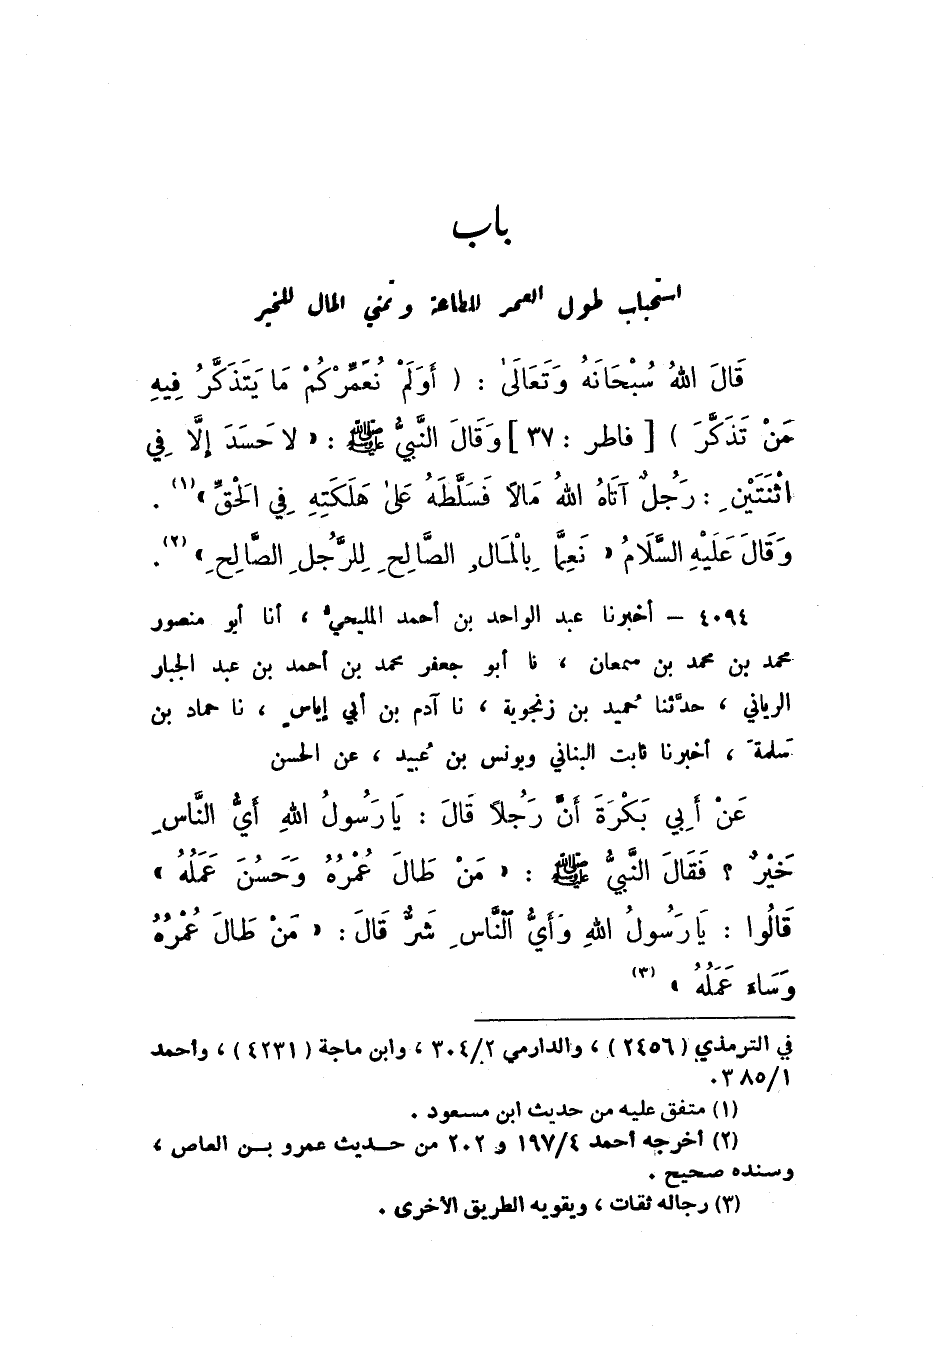 باب
استحباب طول العمر للطاعة وتمني المال للخير
قَالَ اللهُ سُبْحَانَهُ وَتَعَالَىٰ : ( أَوَلَمْ نُعَمِّرْكُمْ مَا يَتَذَكَّرُ فِيهِ
مَنْ تَذَكَّرَ ) [ فاطر : ٣٧ ] وَقَالَ النَّبِيُّ ﷺ : « لا حَسَدَ إِلَّا فِي
اثْنَتَيْنِ : رَجُلٌ آتَاهُ اللهُ مَالًا فَسَلَّطَهُ عَلىٰ هَلَكَتِهِ فِي الْحَقِّ » (١) .
وَقَالَ عَلَيْهِ السَّلَامُ « نَعِمَّا بِالْمَالِ الصَّالِحِ لِلرَّجُلِ الصَّالِحِ » (٢) .
٤٠٩٤ – أخبرنا عبد الواحد بن أحمد المليحيُّ ، أنا أبو منصور
محمد بن محمد بن سمعان ، نا أبو جعفر محمد بن أحمد بن عبد الجبار
الرياني ، حدَّثنا حُميد بن زنجوية ، نا آدم بن أبي إياسٍ ، نا حماد بن
سَلمةَ ، أخبرنا ثابت البناني ويونس بن عُبيد ، عن الحسن
عَنْ أَبِي بَكْرَةَ أَنَّ رَجُلًا قَالَ : يَا رَسُولُ اللهِ أَيُّ النَّاسِ
خَيْرٌ ؟ فَقَالَ النَّبِيُّ ﷺ : « مَنْ طَالَ عُمْرُهُ وَحَسُنَ عَمَلُهُ »
قَالُوا : يَا رَسُولُ اللهِ وَأَيُّ النَّاسِ شَرٌّ قَالَ : « مَنْ طَالَ عُمْرُهُ
وَسَاءَ عَمَلُهُ » (٣)
في الترمذي ( ٢٤٥٦ ) ، والدارمي ٣٠٤/٢ ، وابن ماجة ( ٤٢٣١ ) ، وأحمد
٣٨٥/١ .
(١) متفق عليه من حديث ابن مسعود .
(٢) أخرجه أحمد ١٩٧/٤ و ٢٠٢ من حديث عمرو بن العاص ،
وسنده صحيح .
(٣) رجاله ثقات ، ويقويه الطريق الأخرى .